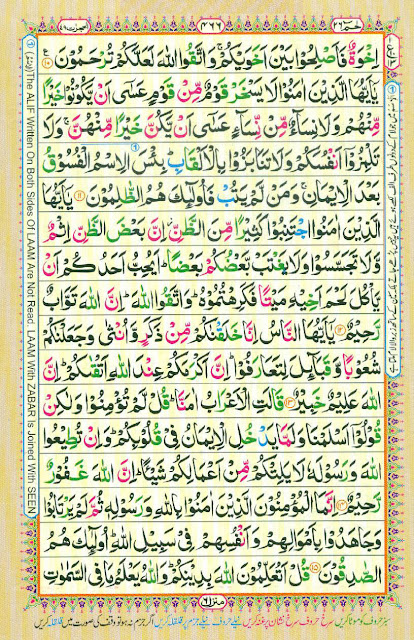 حٰمٓ ٢٦
٤٦٦
الحجرات ٤٩
اِخْوَةٌ فَاَصْلِحُوْا بَيْنَ اَخَوَيْكُمْ وَاتَّقُوا اللّٰهَ لَعَلَّكُمْ تُرْحَمُوْنَ ١٠
يٰۤاَيُّهَا الَّذِيْنَ اٰمَنُوْا لَا يَسْخَرْ قَوْمٌ مِّنْ قَوْمٍ عَسٰۤى اَنْ يَّكُوْنُوْا خَيْرًا
مِّنْهُمْ وَلَا نِسَآءٌ مِّنْ نِّسَآءٍ عَسٰۤى اَنْ يَّكُنَّ خَيْرًا مِّنْهُنَّ ۚ وَلَا
تَلْمِزُوْۤا اَنْفُسَكُمْ وَلَا تَنَابَزُوْا بِالْاَلْقَابِ ؕ بِئْسَ الِاسْمُ الْفُسُوْقُ
بَعْدَ الْاِيْمَانِ ۚ وَمَنْ لَّمْ يَتُبْ فَاُولٰٓئِكَ هُمُ الظّٰلِمُوْنَ ١١ يٰۤاَيُّهَا
الَّذِيْنَ اٰمَنُوا اجْتَنِبُوْا كَثِيْرًا مِّنَ الظَّنِّ ؗ اِنَّ بَعْضَ الظَّنِّ اِثْمٌ
وَّلَا تَجَسَّسُوْا وَلَا يَغْتَبْ بَّعْضُكُمْ بَعْضًا ؕ اَيُحِبُّ اَحَدُكُمْ اَنْ
يَّاْكُلَ لَحْمَ اَخِيْهِ مَيْتًا فَكَرِهْتُمُوْهُ ؕ وَاتَّقُوا اللّٰهَ ؕ اِنَّ اللّٰهَ تَوَّابٌ
رَّحِيْمٌ ١٢ يٰۤاَيُّهَا النَّاسُ اِنَّا خَلَقْنٰكُمْ مِّنْ ذَكَرٍ وَّاُنْثٰى وَجَعَلْنٰكُمْ
شُعُوْبًا وَّقَبَآئِلَ لِتَعَارَفُوْا ؕ اِنَّ اَكْرَمَكُمْ عِنْدَ اللّٰهِ اَتْقٰىكُمْ ؕ اِنَّ
اللّٰهَ عَلِيْمٌ خَبِيْرٌ ١٣ قَالَتِ الْاَعْرَابُ اٰمَنَّا ؕ قُلْ لَّمْ تُؤْمِنُوْا وَلٰكِنْ
قُوْلُوْۤا اَسْلَمْنَا وَلَمَّا يَدْخُلِ الْاِيْمَانُ فِيْ قُلُوْبِكُمْ ؕ وَاِنْ تُطِيْعُوا
اللّٰهَ وَرَسُوْلَهٗ لَا يَلِتْكُمْ مِّنْ اَعْمَالِكُمْ شَيْـًٔا ؕ اِنَّ اللّٰهَ غَفُوْرٌ
رَّحِيْمٌ ١٤ اِنَّمَا الْمُؤْمِنُوْنَ الَّذِيْنَ اٰمَنُوْا بِاللّٰهِ وَرَسُوْلِهٖ ثُمَّ لَمْ يَرْتَابُوْا
وَجَاهَدُوْا بِاَمْوَالِهِمْ وَاَنْفُسِهِمْ فِيْ سَبِيْلِ اللّٰهِ ؕ اُولٰٓئِكَ هُمُ
الصّٰدِقُوْنَ ١٥ قُلْ اَتُعَلِّمُوْنَ اللّٰهَ بِدِيْنِكُمْ ؕ وَاللّٰهُ يَعْلَمُ مَا فِي السَّمٰوٰتِ
منزل ٦
The ALIF Written On Both Sides Of LAAM Are Not Read. LAAM With ZABAR Is Joined With SEEN